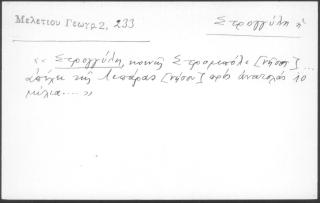 Μελετίου Γεωγρ 2, 233
Στρογγύλη ἡ
« Στρογγύλη, κοινῶς Στρομπόλε [νῆσος]...
ἀπέχει τῆς Λιπάρας [νήσου] πρὸς ἀνατολάς 10
μίλια.... »